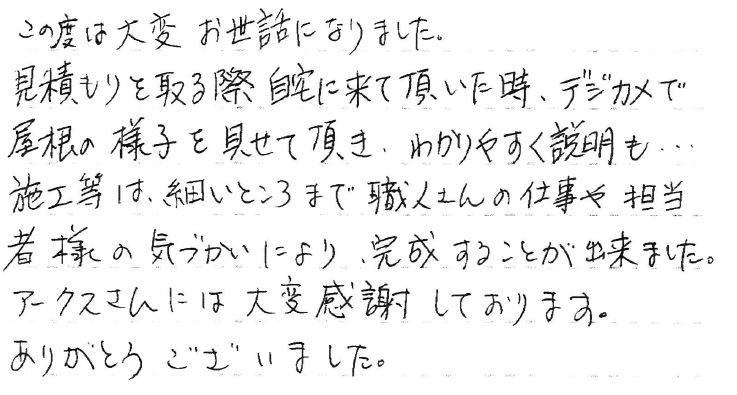 この度は大変お世話になりました。
見積もりを取る際自宅に来て頂いた時、デジカメで
屋根の様子を見せて頂き、わかりやすく説明も…
施工等は、細いところまで職人さんの仕事や担当
者様の気づかいにより、完成することが出来ました。
アークスさんには大変感謝しております。
ありがとうございました。